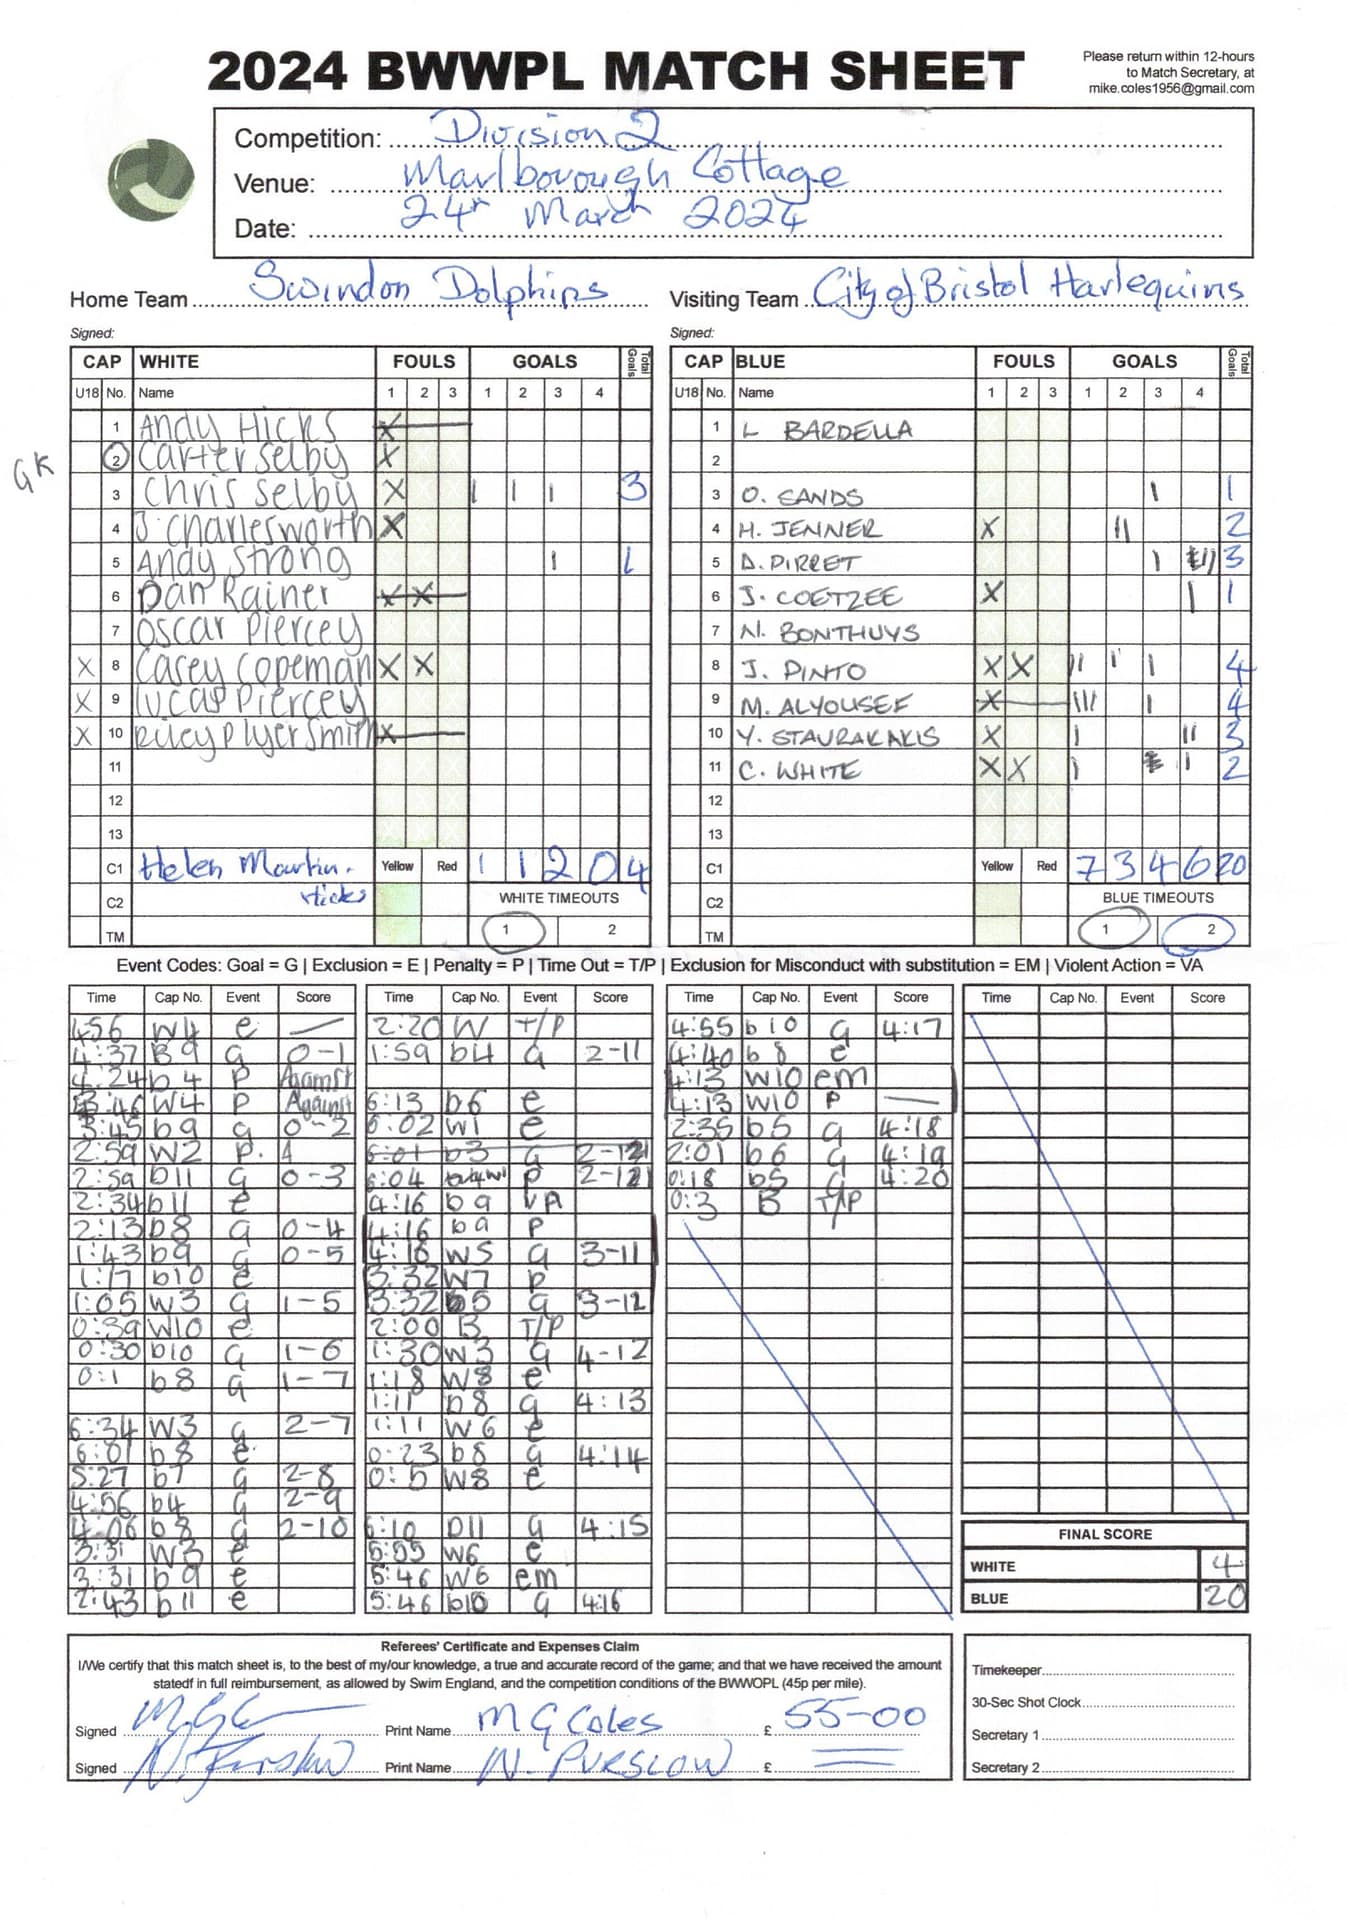 2024 BWWPL MATCH SHEET
Please return within 12-hours
to Match Secretary, at
mike.coles1956@gmail.com
Competition: Division 2
Venue: Marlborough Cottage
Date: 24th March 2024
Home Team Swindon Dolphins
Visiting Team City of Bristol Harlequins
Signed:
Signed:
CAP WHITE FOULS GOALS Total Goals
U18 No. Name 1 2 3 1 2 3 4
1 Andy Hicks X
GK 2 Carter Selby X
3 Chris Selby X | | | 3
4 J. Charlesworth X
5 Andy Strong | 1
6 Dan Rainer X X
7 Oscar Piercey
X 8 Casey Copeman X X
X 9 Lucas Piercey
X 10 Riley Plyer Smith X
11
12
13
C1 Helen Martin- Hicks Yellow Red 1 1 2 0 4
C2 WHITE TIMEOUTS
TM 1 2
CAP BLUE FOULS GOALS Total Goals
U18 No. Name 1 2 3 1 2 3 4
1 L BARDELLA
2
3 O. SANDS | 1
4 H. JENNER X || 2
5 D. PIRRET | || 3
6 J. COETZEE X | 1
7 N. BONTHUYS
8 J. PINTO X X || | | 4
9 M. ALYOUSEF X ||| | 4
10 Y. STAURAKAKIS X | || 3
11 C. WHITE X X | | 2
12
13
C1 Yellow Red 7 3 4 6 20
C2 BLUE TIMEOUTS
TM 1 2
Event Codes: Goal = G | Exclusion = E | Penalty = P | Time Out = T/P | Exclusion for Misconduct with substitution = EM | Violent Action = VA
Time Cap No. Event Score
4:56 W4 e —
4:37 B9 G 0-1
4:24 b4 P Against
3:46 W4 P Against
3:45 b9 G 0-2
2:59 W2 P. A
2:59 b11 G 0-3
2:34 b11 e
2:13 b8 G 0-4
1:43 b9 G 0-5
1:17 b10 e
1:05 W3 G 1-5
0:39 W10 e
0:30 b10 G 1-6
0:1 b8 G 1-7
6:34 W3 G 2-7
6:01 b8 e
5:27 b7 G 2-8
4:56 b4 G 2-9
4:06 b8 G 2-10
3:31 W3 e
3:31 b9 e
2:43 b11 e
Time Cap No. Event Score
2:20 W T/P
1:59 b4 G 2-11
6:13 b6 e
6:02 W1 e
6:01 b3 G 2-12
6:04 W1 P 2-12
4:16 b9 VA
4:16 b9 P
4:16 W5 G 3-11
3:32 W7 P
3:32 b5 G 3-12
2:00 B T/P
1:30 W3 G 4-12
1:18 W8 e
1:11 b8 G 4:13
1:11 W6 e
0:23 b8 G 4:14
0:5 W8 e
6:10 b11 G 4:15
5:55 W6 e
5:46 W6 em
5:46 b10 G 4:16
Time Cap No. Event Score
4:55 b10 G 4:17
4:40 b8 e
4:13 W10 em
4:13 W10 P —
2:35 b5 G 4:18
2:01 b6 G 4:19
0:18 b5 G 4:20
0:3 B T/P
Time Cap No. Event Score
FINAL SCORE
WHITE 4
BLUE 20
Referees' Certificate and Expenses Claim
I/We certify that this match sheet is, to the best of my/our knowledge, a true and accurate record of the game; and that we have received the amount
statedf in full reimbursement, as allowed by Swim England, and the competition conditions of the BWWOPL (45p per mile).
Signed Print Name M G Coles £ 55-00
Signed N. Purslow Print Name N. PURSLOW £
Timekeeper
30-Sec Shot Clock
Secretary 1
Secretary 2